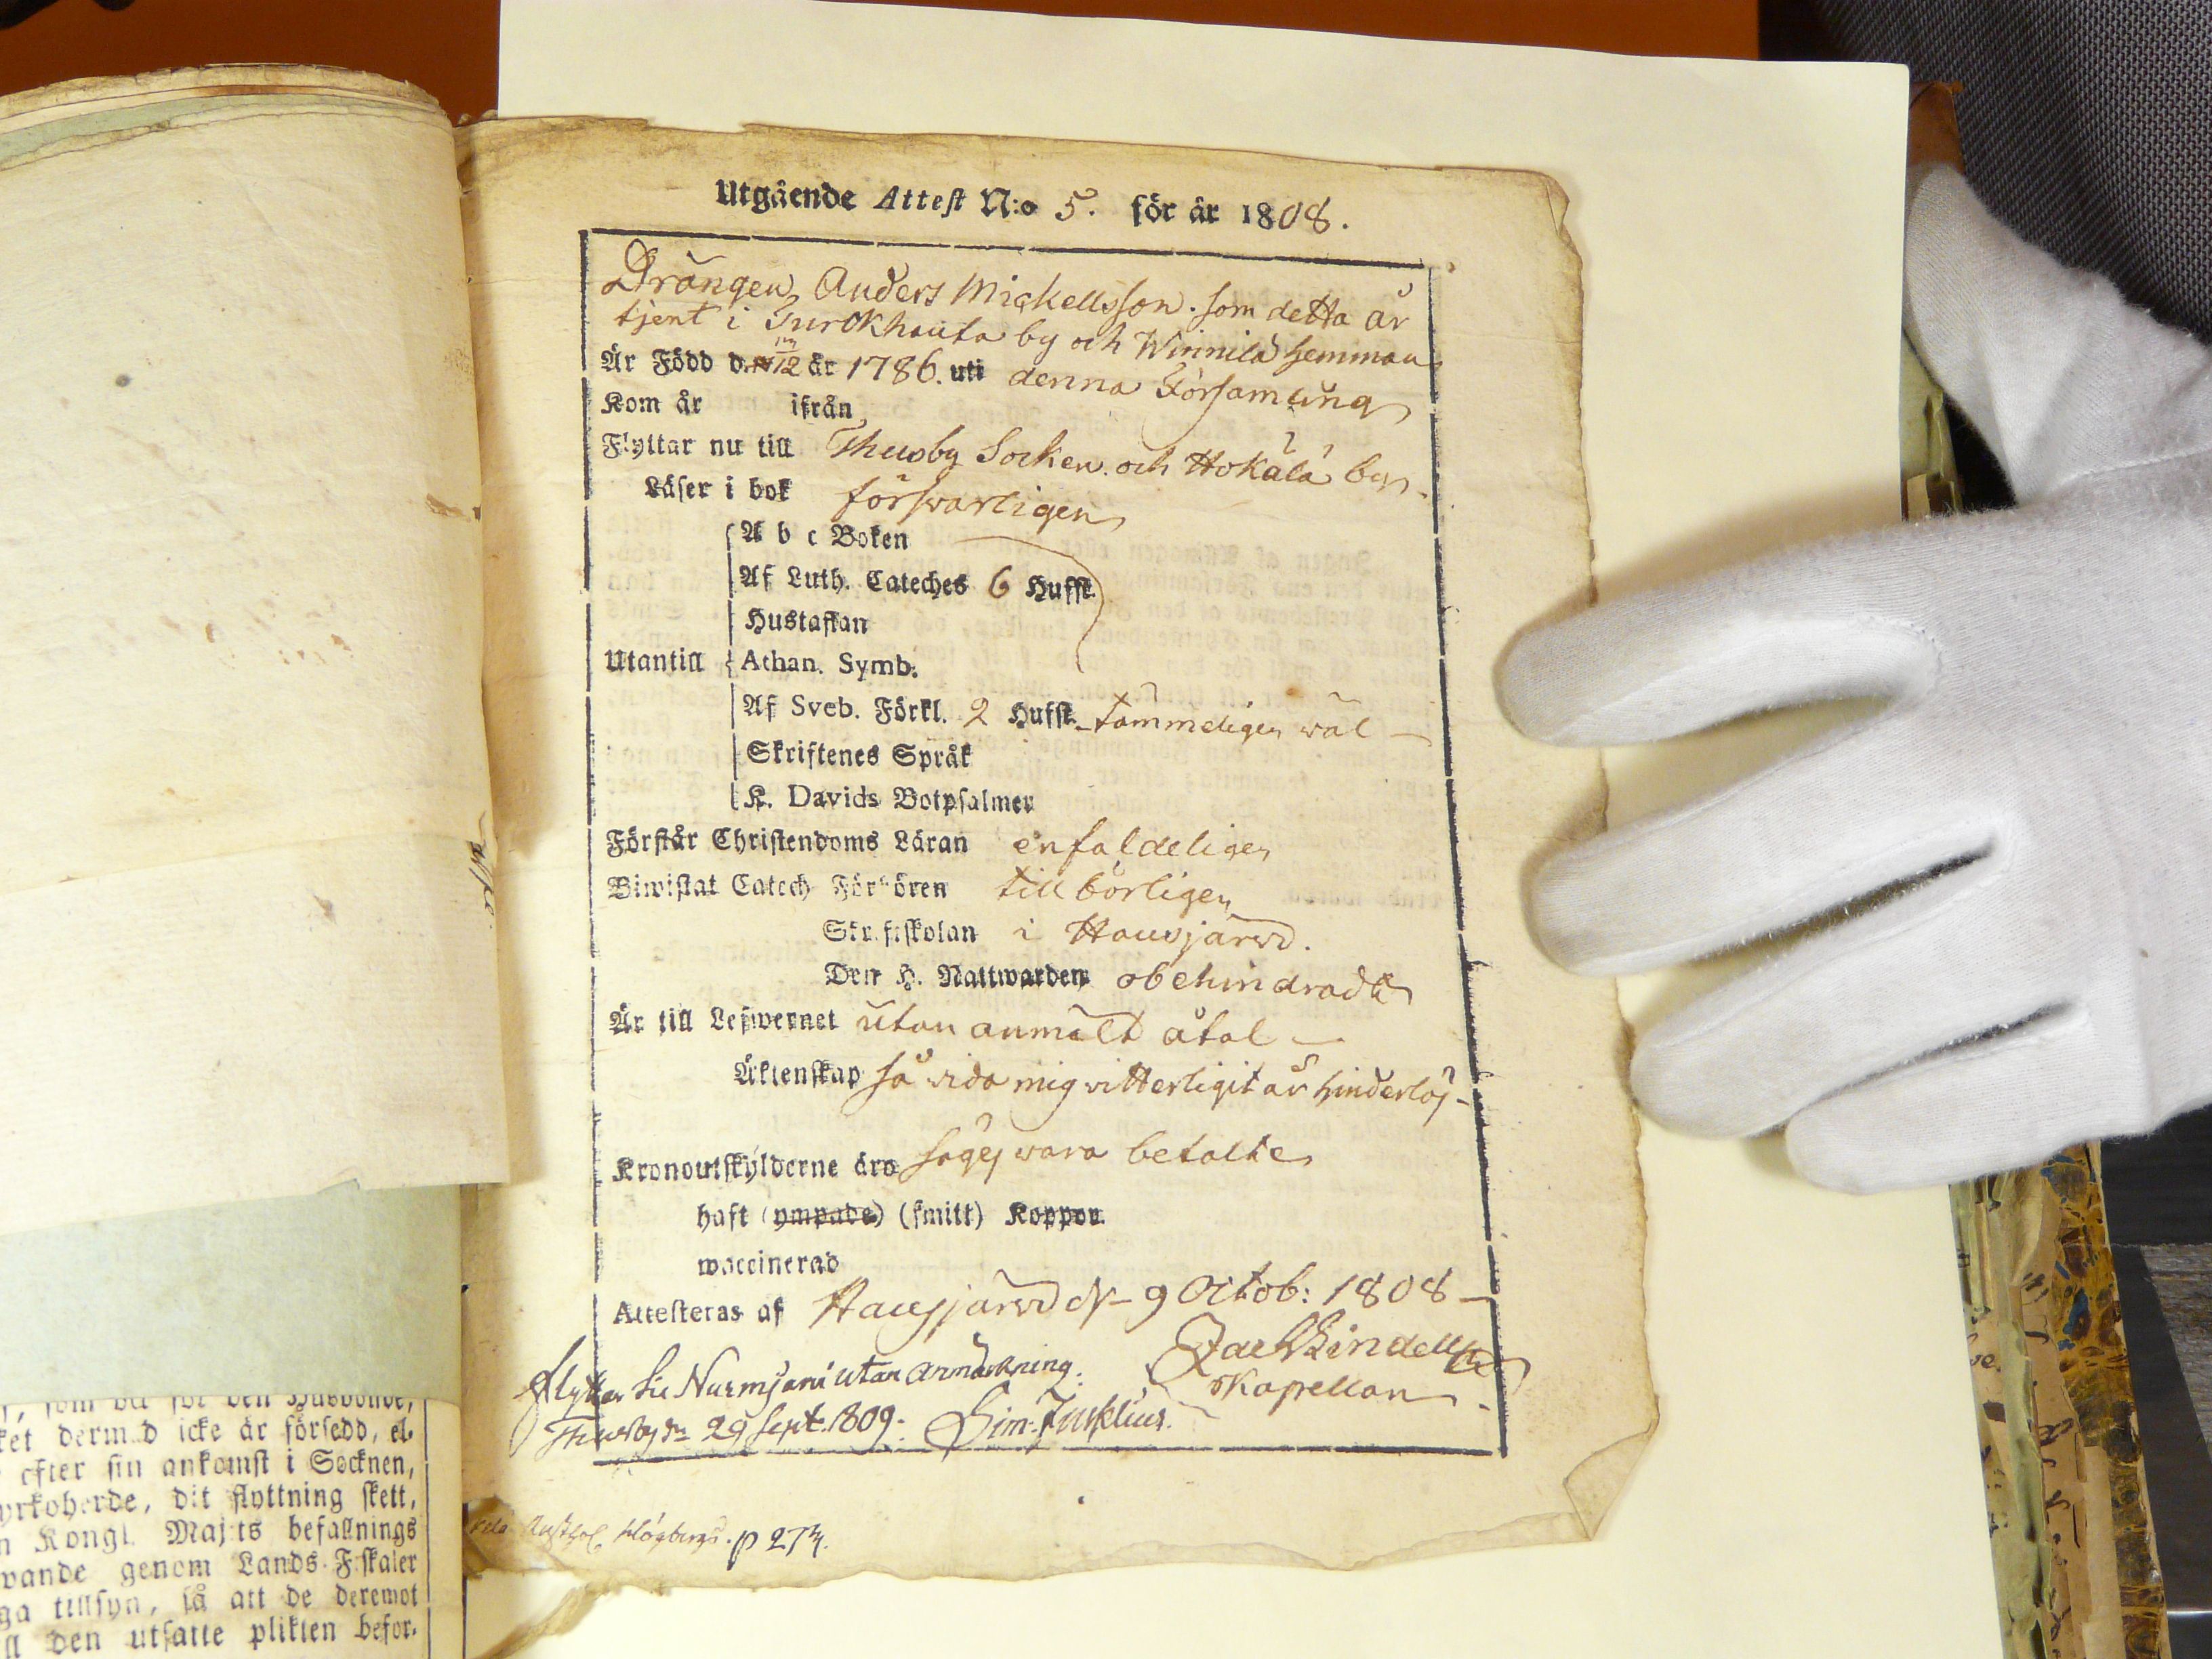 Utgående Attest N:o 5. för år 1808.
Drängen Anders Mickellsson. som detta år
tjent i Turckhauta by och Winnilä hemman
Är Född d. 12 år 1786. uti denna Församling
Kom år ifrån
Flyttar nu till Thusby Socken och Hokälä by.
Läser i bok förswarligen
A b c Boken
Af Luth. Cateches 6 Hufst.
Hustaflan
Utantill Athan. Symb.
Af Sveb. Förkl. 2 Hufst. tämmeligen wäl
Skriftenes Språk
K. Davids Botpsalmer
Förstår Christendoms Läran enfaldeligen
Biwistat Catech Förhören tillbörligen
Skriftskolan i Hausjärwi.
Den H. Nattwarden obehindradt
Är till Lefwernet utan anmält åtal
Äktenskap så vida mig vitterligit är hinderlös
Kronoutskylderne äro säges wara betalte
haft (ympade) (smitt) Koppor.
waccinerad
Attesteras af Hausjärwi d. 9 Octob: 1808
Zach Lindell
Kapellan
Flyttar till Nurmijärvi utan anmärkning.
Thusby d. 29 Sept. 1809. Sim.
Högbergs. p 274.
, som
ket dermed icke är försedd, el-
efter sin ankomst i Socknen,
yrkoherde, dit flyttning skett,
n Kongl. Maj:ts befallnings
wande genom Lands-Fiskaler
ga tillsyn, så att de deremot
ll den utsatte plikten befor-